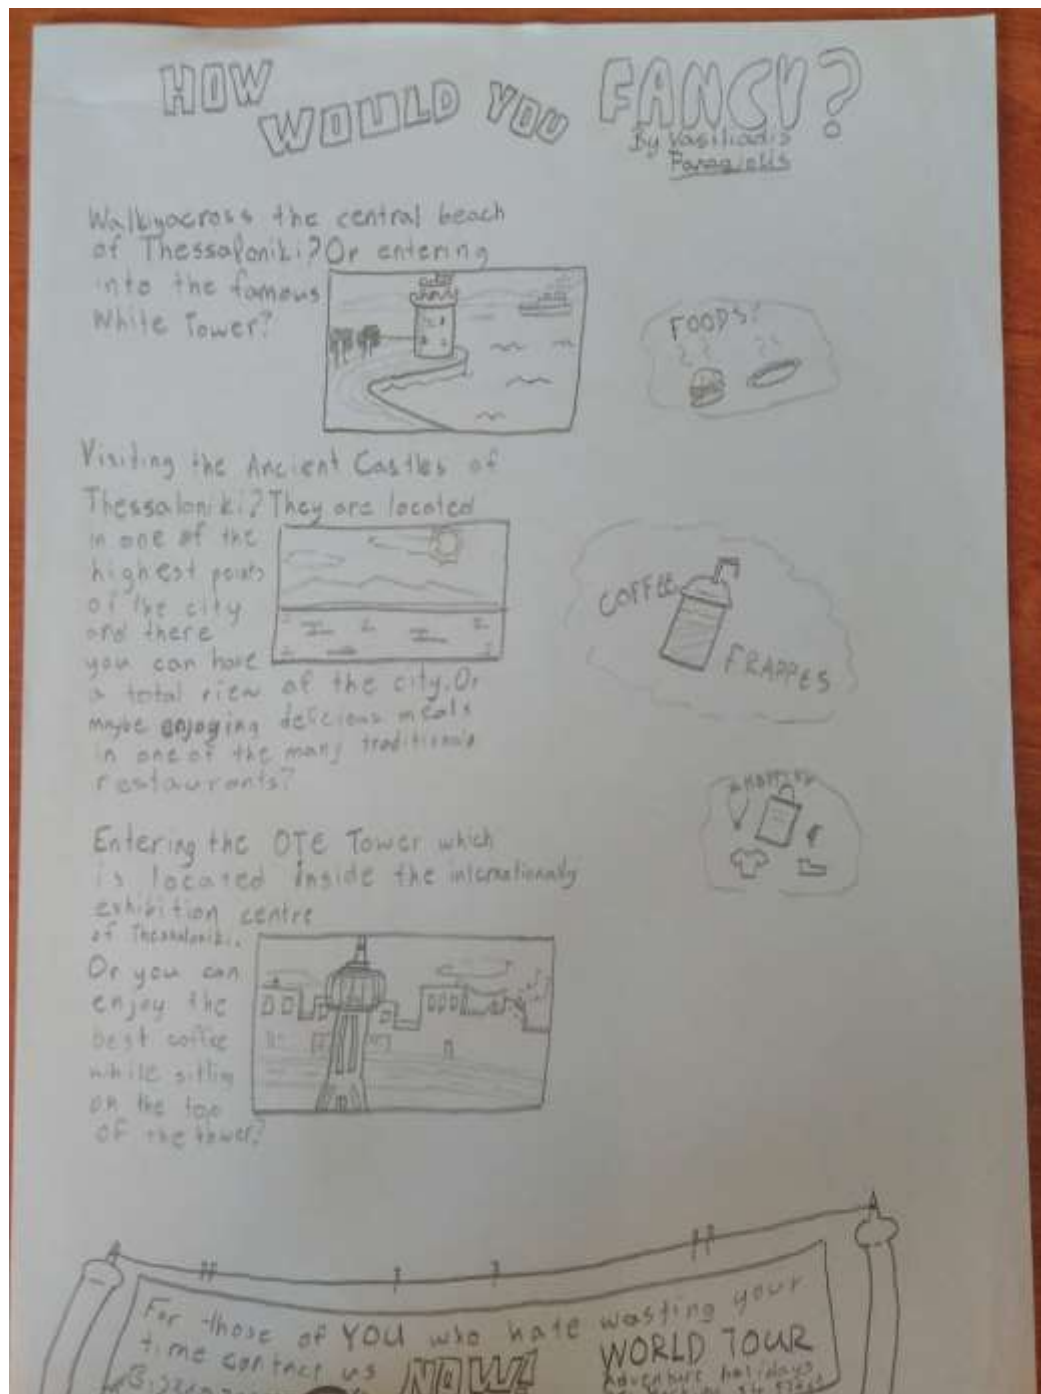 HOW WOULD YOU FANCY?
By Vasiliadis
Panagiotis
Walking across the central beach
of Thessaloniki? Or entering
into the famous
White Tower?
FOODS?
Visiting the Ancient Castles of
Thessaloniki? They are located
in one of the
highest points
of the city
and there
you can have
a total view of the city. Or
maybe enjoying delicious meals
in one of the many traditionals
restaurants?
COFFEE
FRAPPES
SHOPPING
Entering the OTE Tower which
is located inside the internationally
exhibition centre
of Thessaloniki.
Or you can
enjoy the
best coffee
while sitting
on the top
of the tower?
For those of YOU who hate wasting your
time contact us NOW!
WORLD TOUR
Adventure holidays